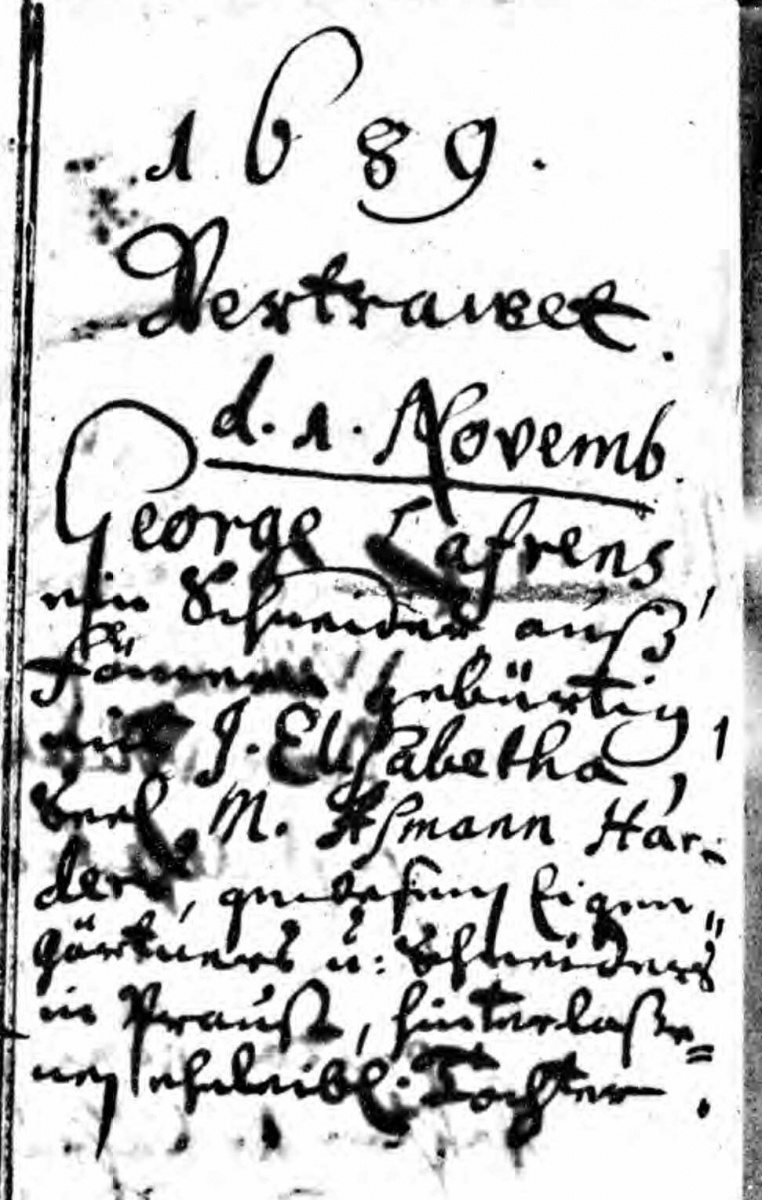 1689.
Vertrawet.
d. 1. Novemb.
George Lafrens,
ein Schneider auß
gebürtig,
mit J. Elisabetha,
Seel. M. Aßmann Har-
ders, gewesenen Eigen-
gärtners u: Schneiders
in Praust, hinterlaße=
nen eheleibl. Tochter.